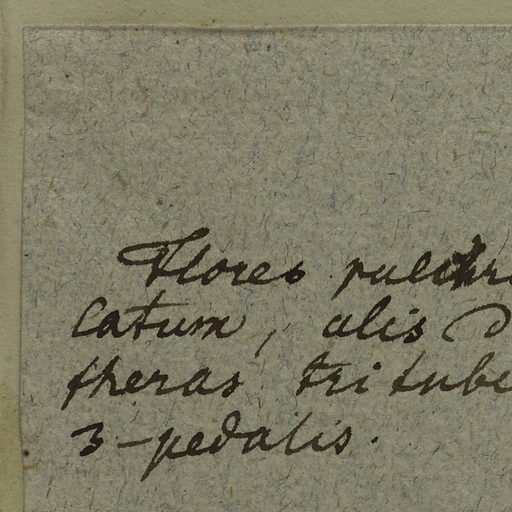 Flores pulchr
catum, alis
theras tritube
3-pedalis.